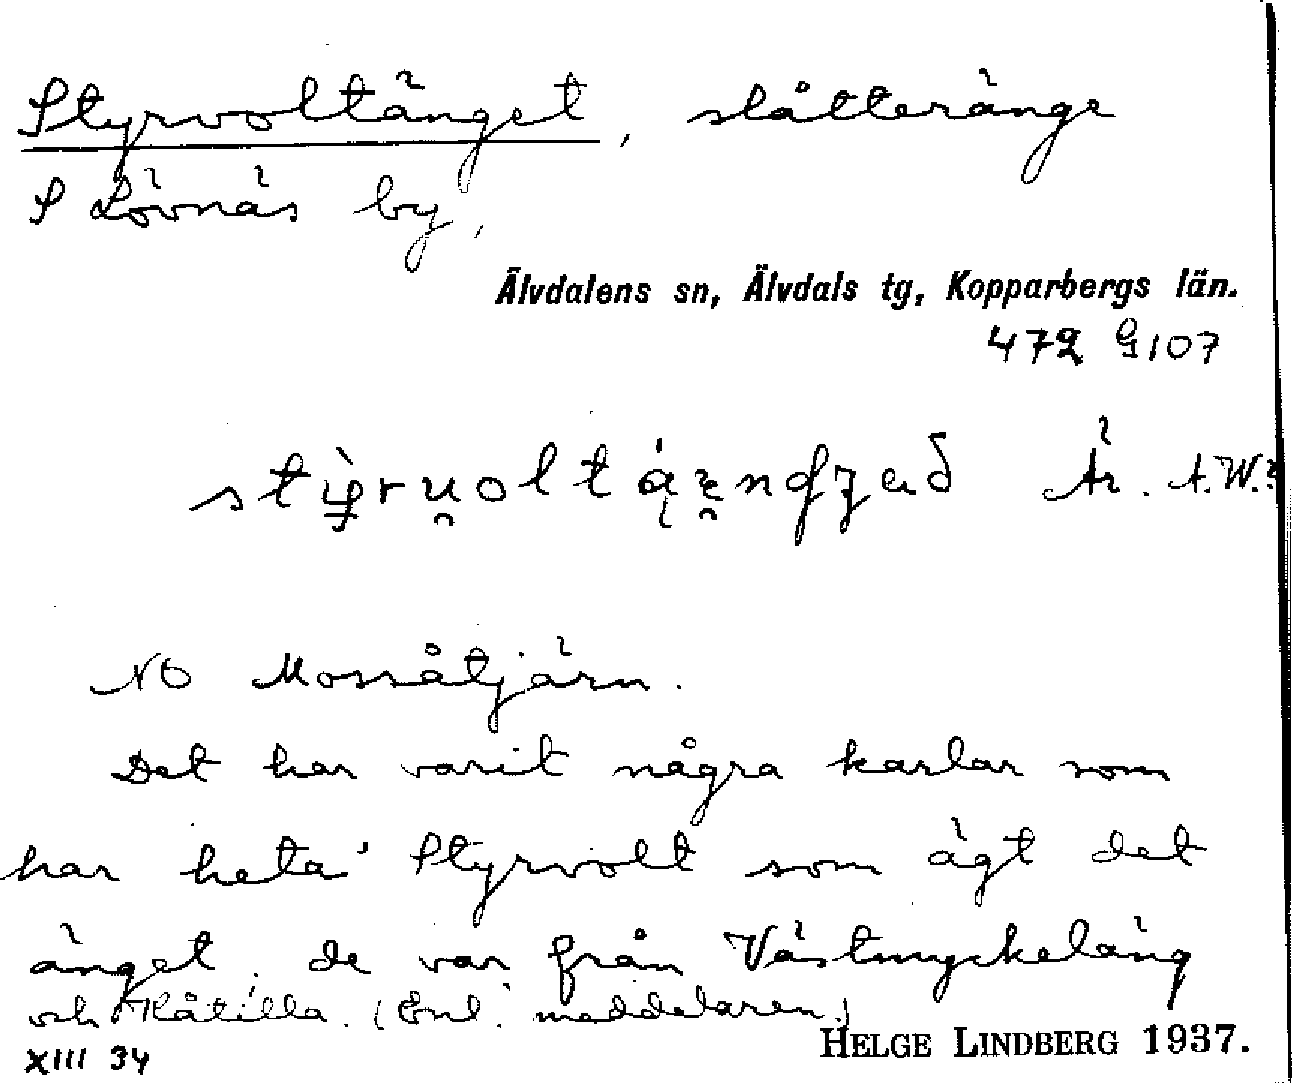 Styrvoltänget, slåtteränge
S Lövnäs by,
Älvdalens sn, Älvdals tg, Kopparbergs län.
472 G107
Är. A.W.
NO Mossåtjärn.
Det har varit några karlar som
har heta' Styrvolt som ägt det
änget. de var från Västmyckeläng
och Klåtilla. (Enl. meddelaren.)
HELGE LINDBERG 1937.
XIII 34